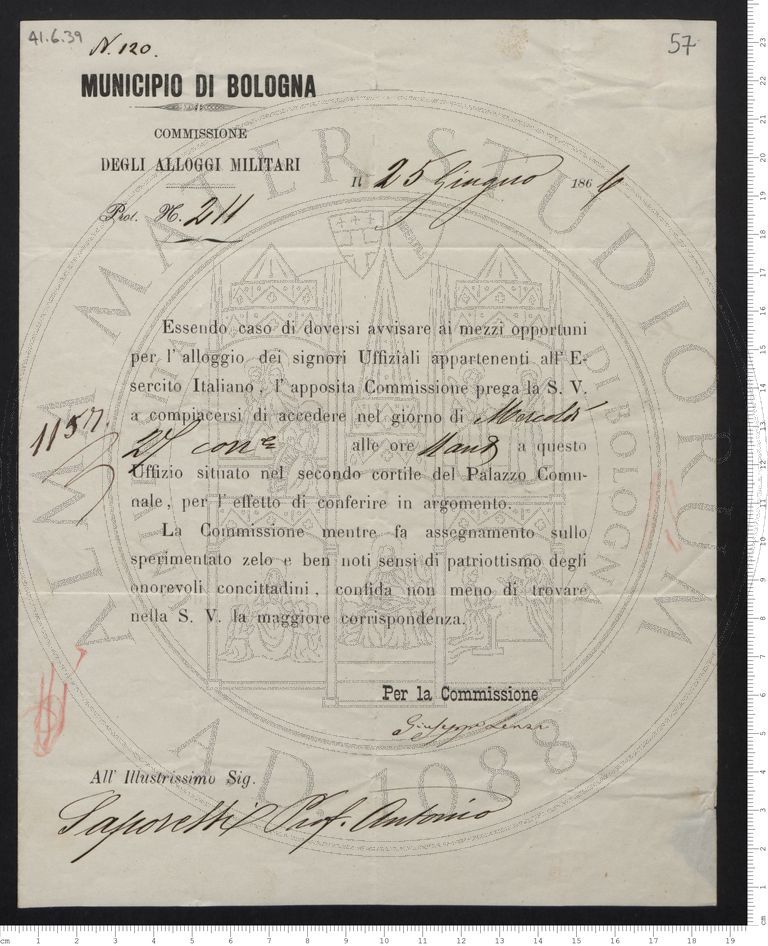 41.6.39
N. 120.
57
MUNICIPIO DI BOLOGNA
COMMISSIONE
DEGLI ALLOGGI MILITARI
Il 25 Giugno 1866
Prot. N. 211
Essendo caso di doversi avvisare ai mezzi opportuni
per l'alloggio dei signori Uffiziali appartenenti all'E-
sercito Italiano, l'apposita Commissione prega la S. V.
a compiacersi di accedere nel giorno di Mercoldì
1157.
27 corr.e alle ore 11 ant. a questo
Uffizio situato nel secondo cortile del Palazzo Comu-
nale, per l'effetto di conferire in argomento.
La Commissione mentre fa assegnamento sullo
sperimentato zelo e ben noti sensi di patriottismo degli
onorevoli concittadini, confida non meno di trovare
nella S. V. la maggiore corrispondenza.
Per la Commissione
Giuseppe
All' Illustrissimo Sig.
Saporetti Prof. Antonio
ALMA MATER STUDIORUM
A.D. 1088
DI BOLOGNA
cm 1 2 3 4 5 6 7 8 9 10 11 12 13 14 15 16 17 18 19
cm 1 2 3 4 5 6 7 8 9 10 11 12 13 14 15 16 17 18 19 20 21 22 23